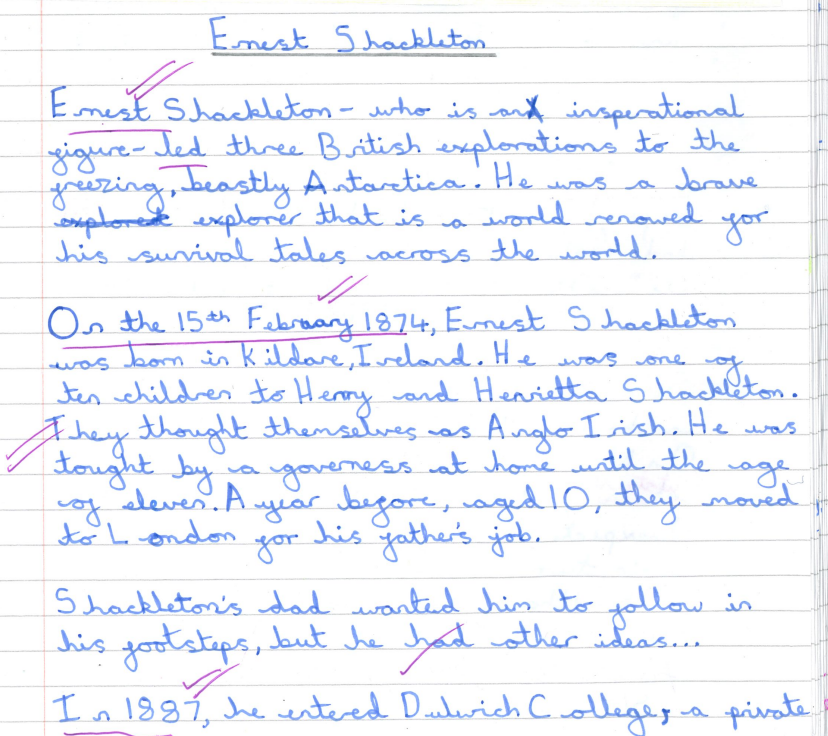 Ernest Shackleton
Ernest Shackleton - who is an insperational
figure - led three British explorations to the
freezing, beastly Antarctica. He was a brave
explorer that is a world renowed for
his survival tales across the world.
On the 15th February 1874, Ernest Shackleton
was born in Kildare, Ireland. He was one of
ten children to Henry and Henrietta Shackleton.
They thought themselves as Anglo Irish. He was
tought by a governess at home until the age
of eleven. A year before, aged 10, they moved
to London for his father's job.
Shackleton's dad wanted him to follow in
his footsteps, but he had other ideas...
In 1887, he entered Dulwich College, a private